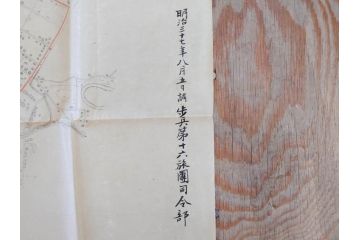 明治三十七年八月五日調 步兵第十六旅團司令部